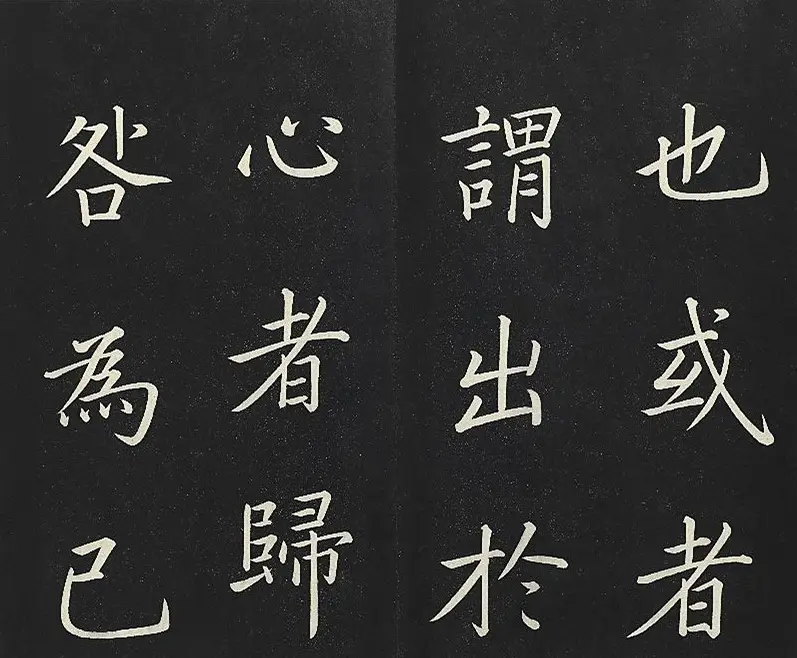 也或者
謂出於
心者歸
咎為己